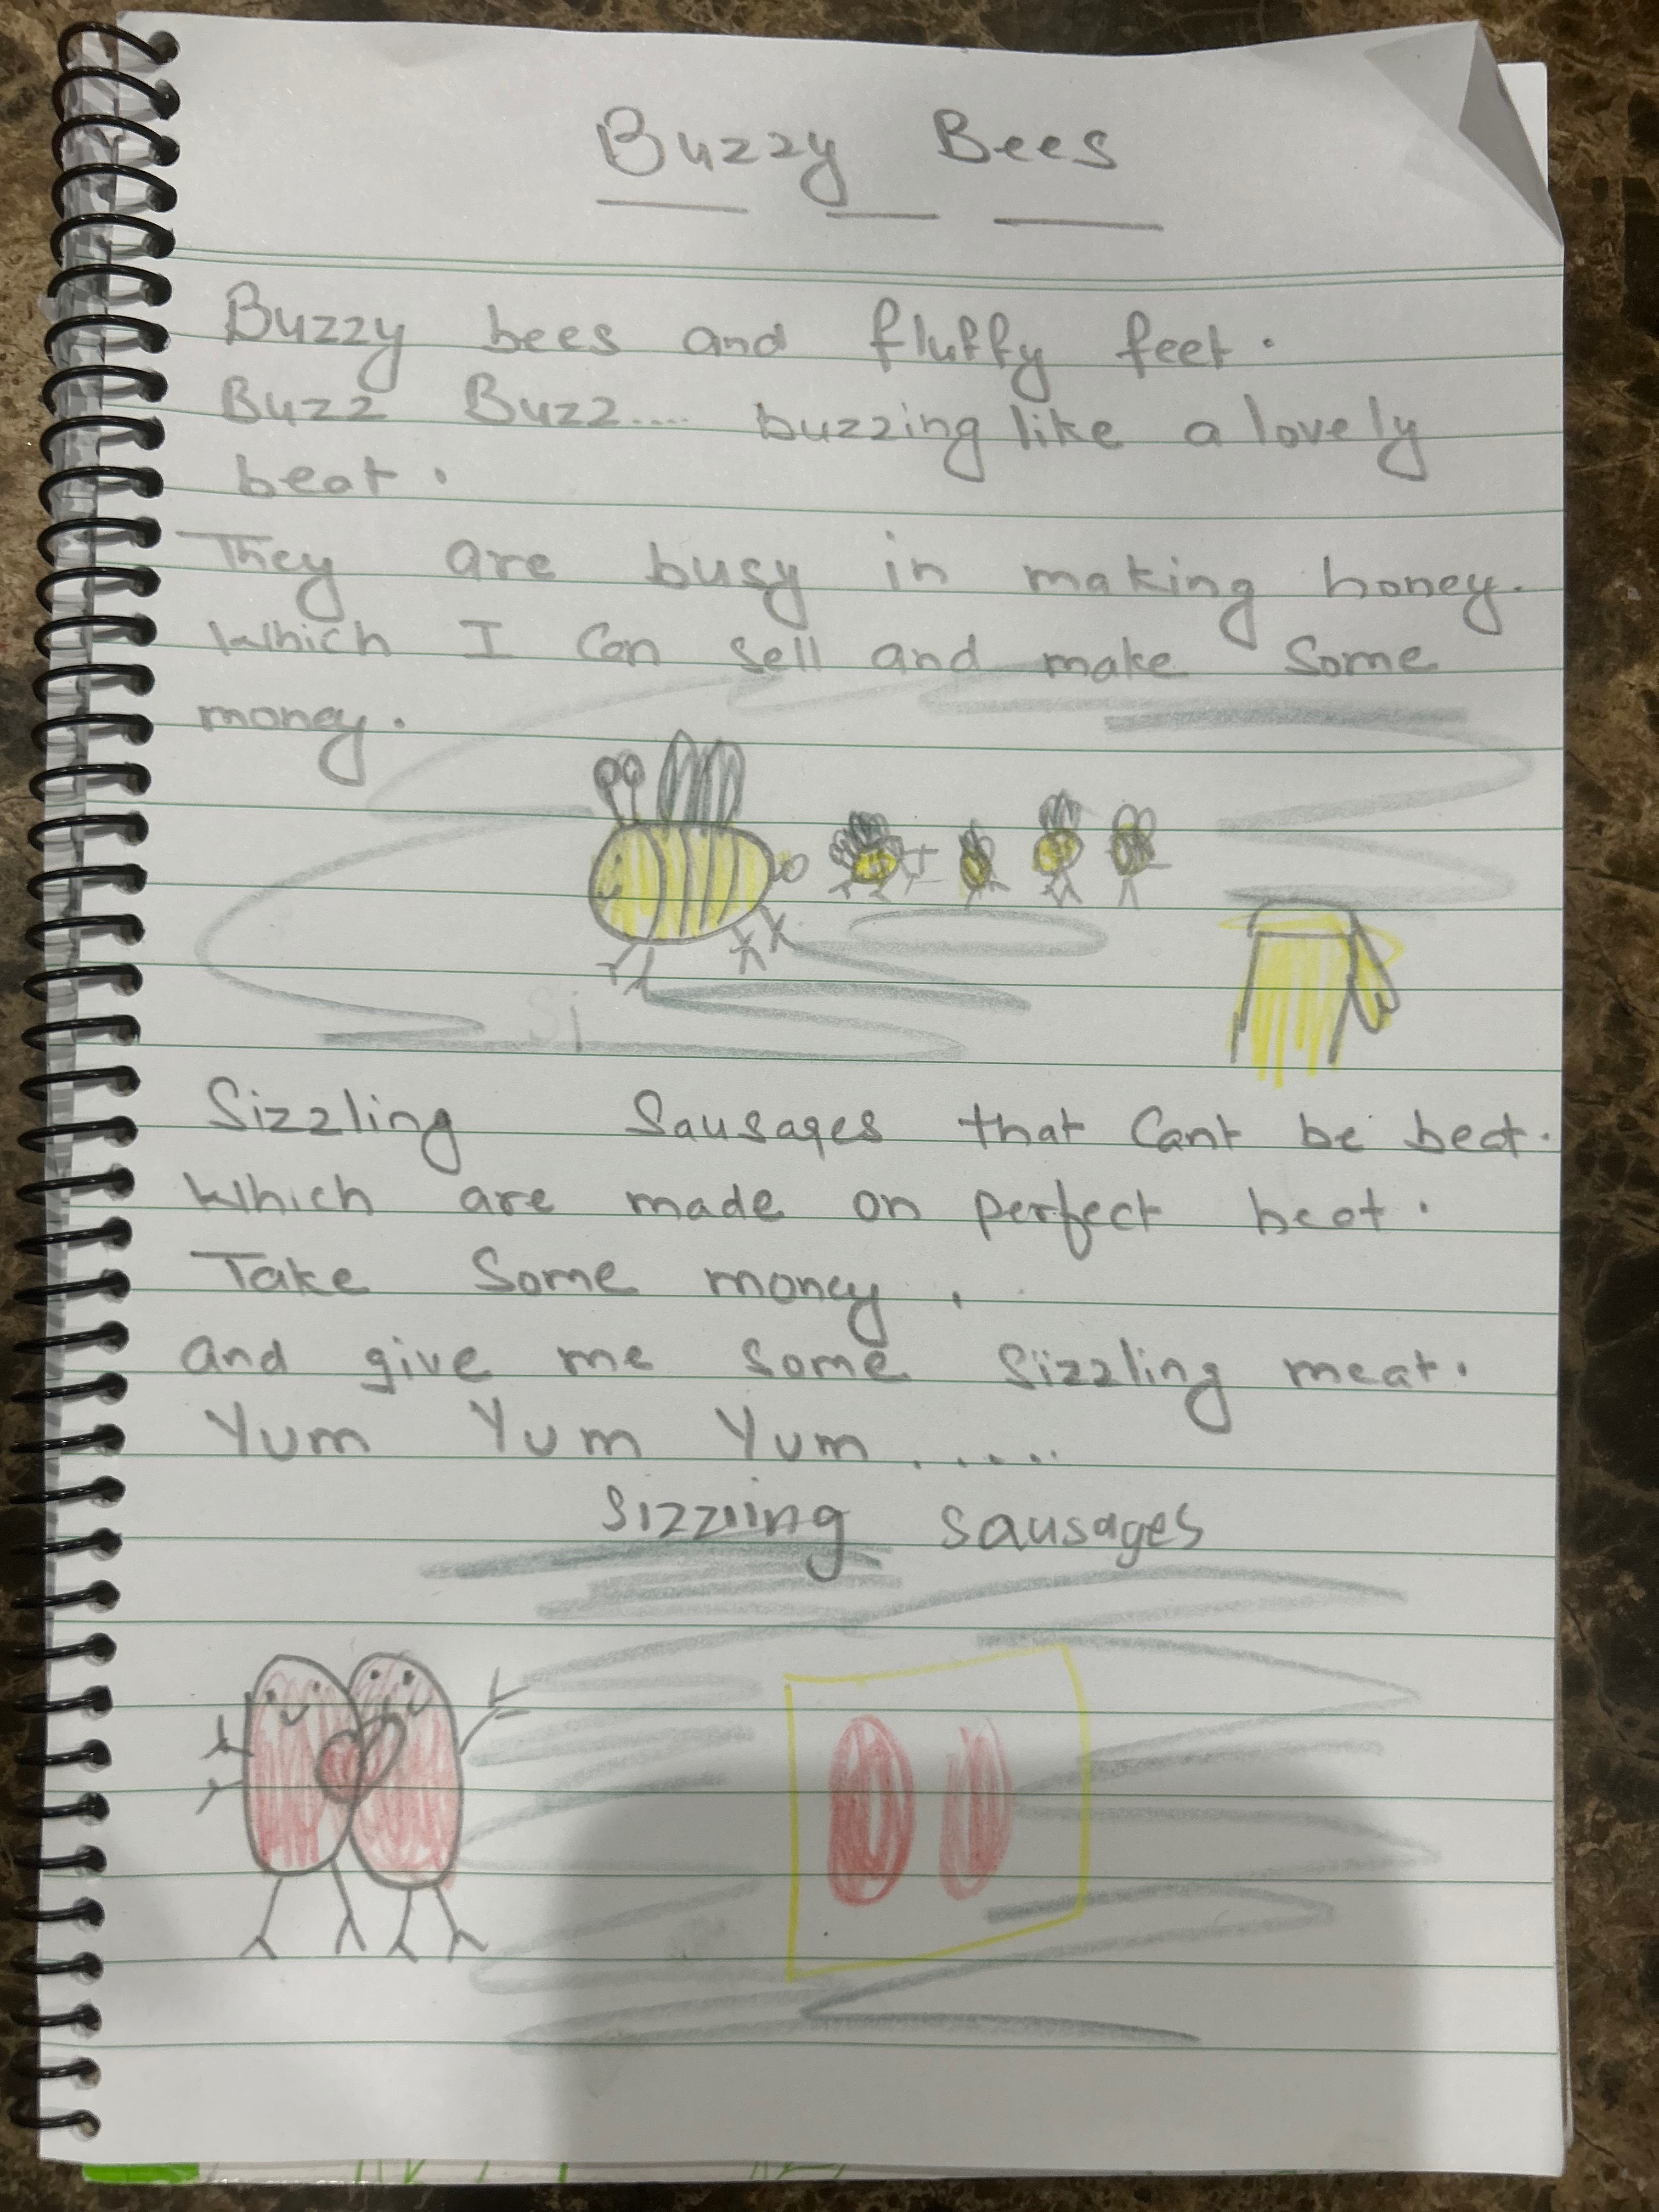 Buzzy Bees
Buzzy bees and fluffy feet.
Buzz Buzz.... buzzing like a lovely
beat.
They are busy in making honey.
Which I Can sell and make Some
money.
Si
Sizzling Sausages that Cant be beat.
Which are made on perfect heat.
Take Some money,
and give me some Sizzling meat.
Yum Yum Yum.....
Sizzling sausages